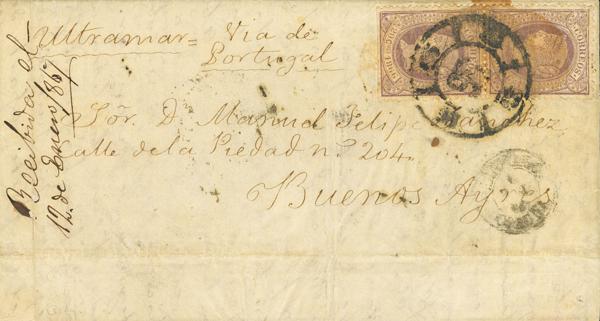 Ultramar = Via de
Portugal
Sór. D. Manuel Felipe Sanchez
Calle de la Piedad nº 204.
Buenos Ayres
Recibida el
12 de Enero /867
CORREOS